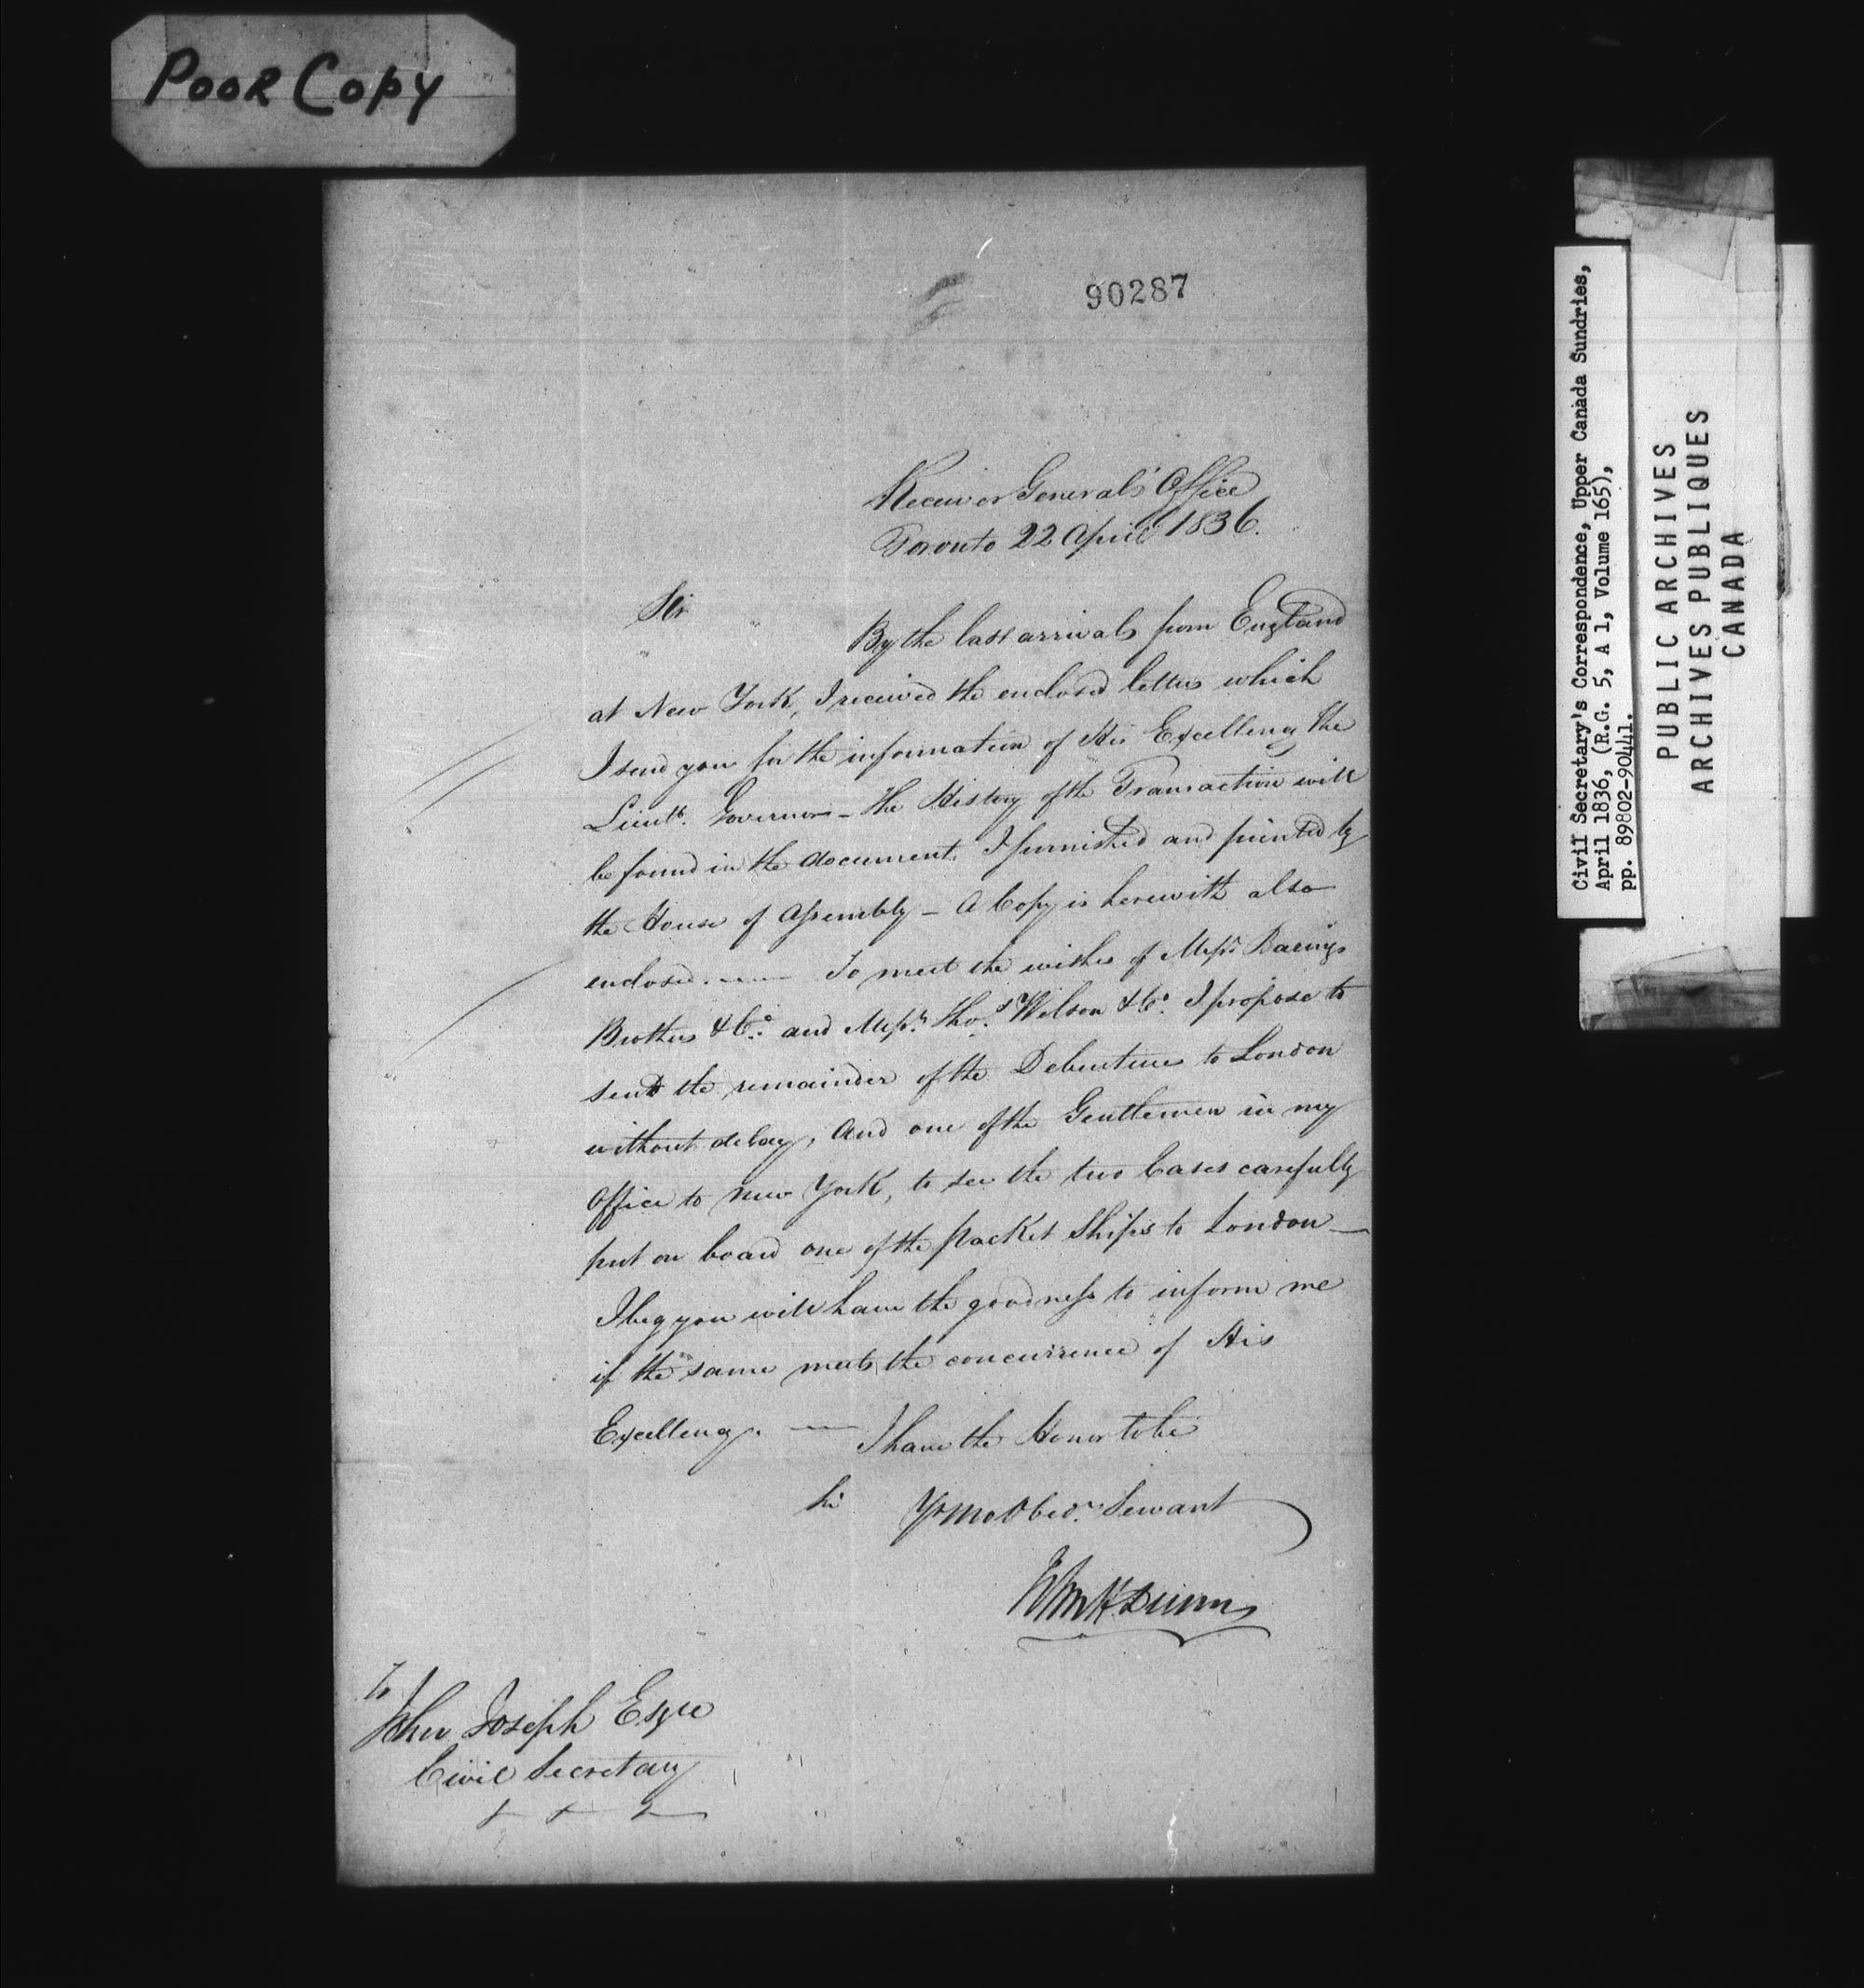 POOR COPY
90287
Receiver General's Office
Toronto 22 April 1836.
Sir
By the last arrivals from England
at New York, I received the enclosed letters which
I send you for the information of His Excellency the
Lieut. Governor - The History of the Transaction will
be found in the document I furnished and printed by
the House of Assembly - A Copy is herewith also
enclosed. To meet the wishes of Messrs Barings
Brothers & Co. and Messrs Thos. Wilson & Co. I propose to
send the remainder of the Debentures to London
without delay, And one of the Gentlemen in my
Office to New York, to see the two Cases carefully
put on board one of the Packet Ships to London -
I beg you will have the goodness to inform me
if the same meets the concurrence of His
Excellency. I have the Honor to be
Sir Yr Mo Obedt. Servant
John H Dunn
To
John Joseph Esqre
Civil Secretary
Civil Secretary's Correspondence, Upper Canada Sundries,
April 1836, (R.G. 5, A 1, Volume 165),
pp. 89802-90441.
PUBLIC ARCHIVES
ARCHIVES PUBLIQUES
CANADA